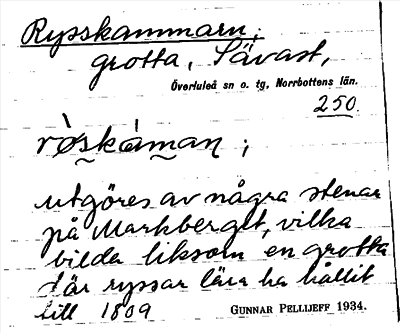 Rysskammarn,
grotta, Sävast,
Överluleå sn o. tg, Norrbottens län.
250.
utgöres av några stenar
på Markberget, vilka
bilda liksom en grotta
där ryssar lära ha hållit
till 1809
GUNNAR PELLIJEFF 1934.